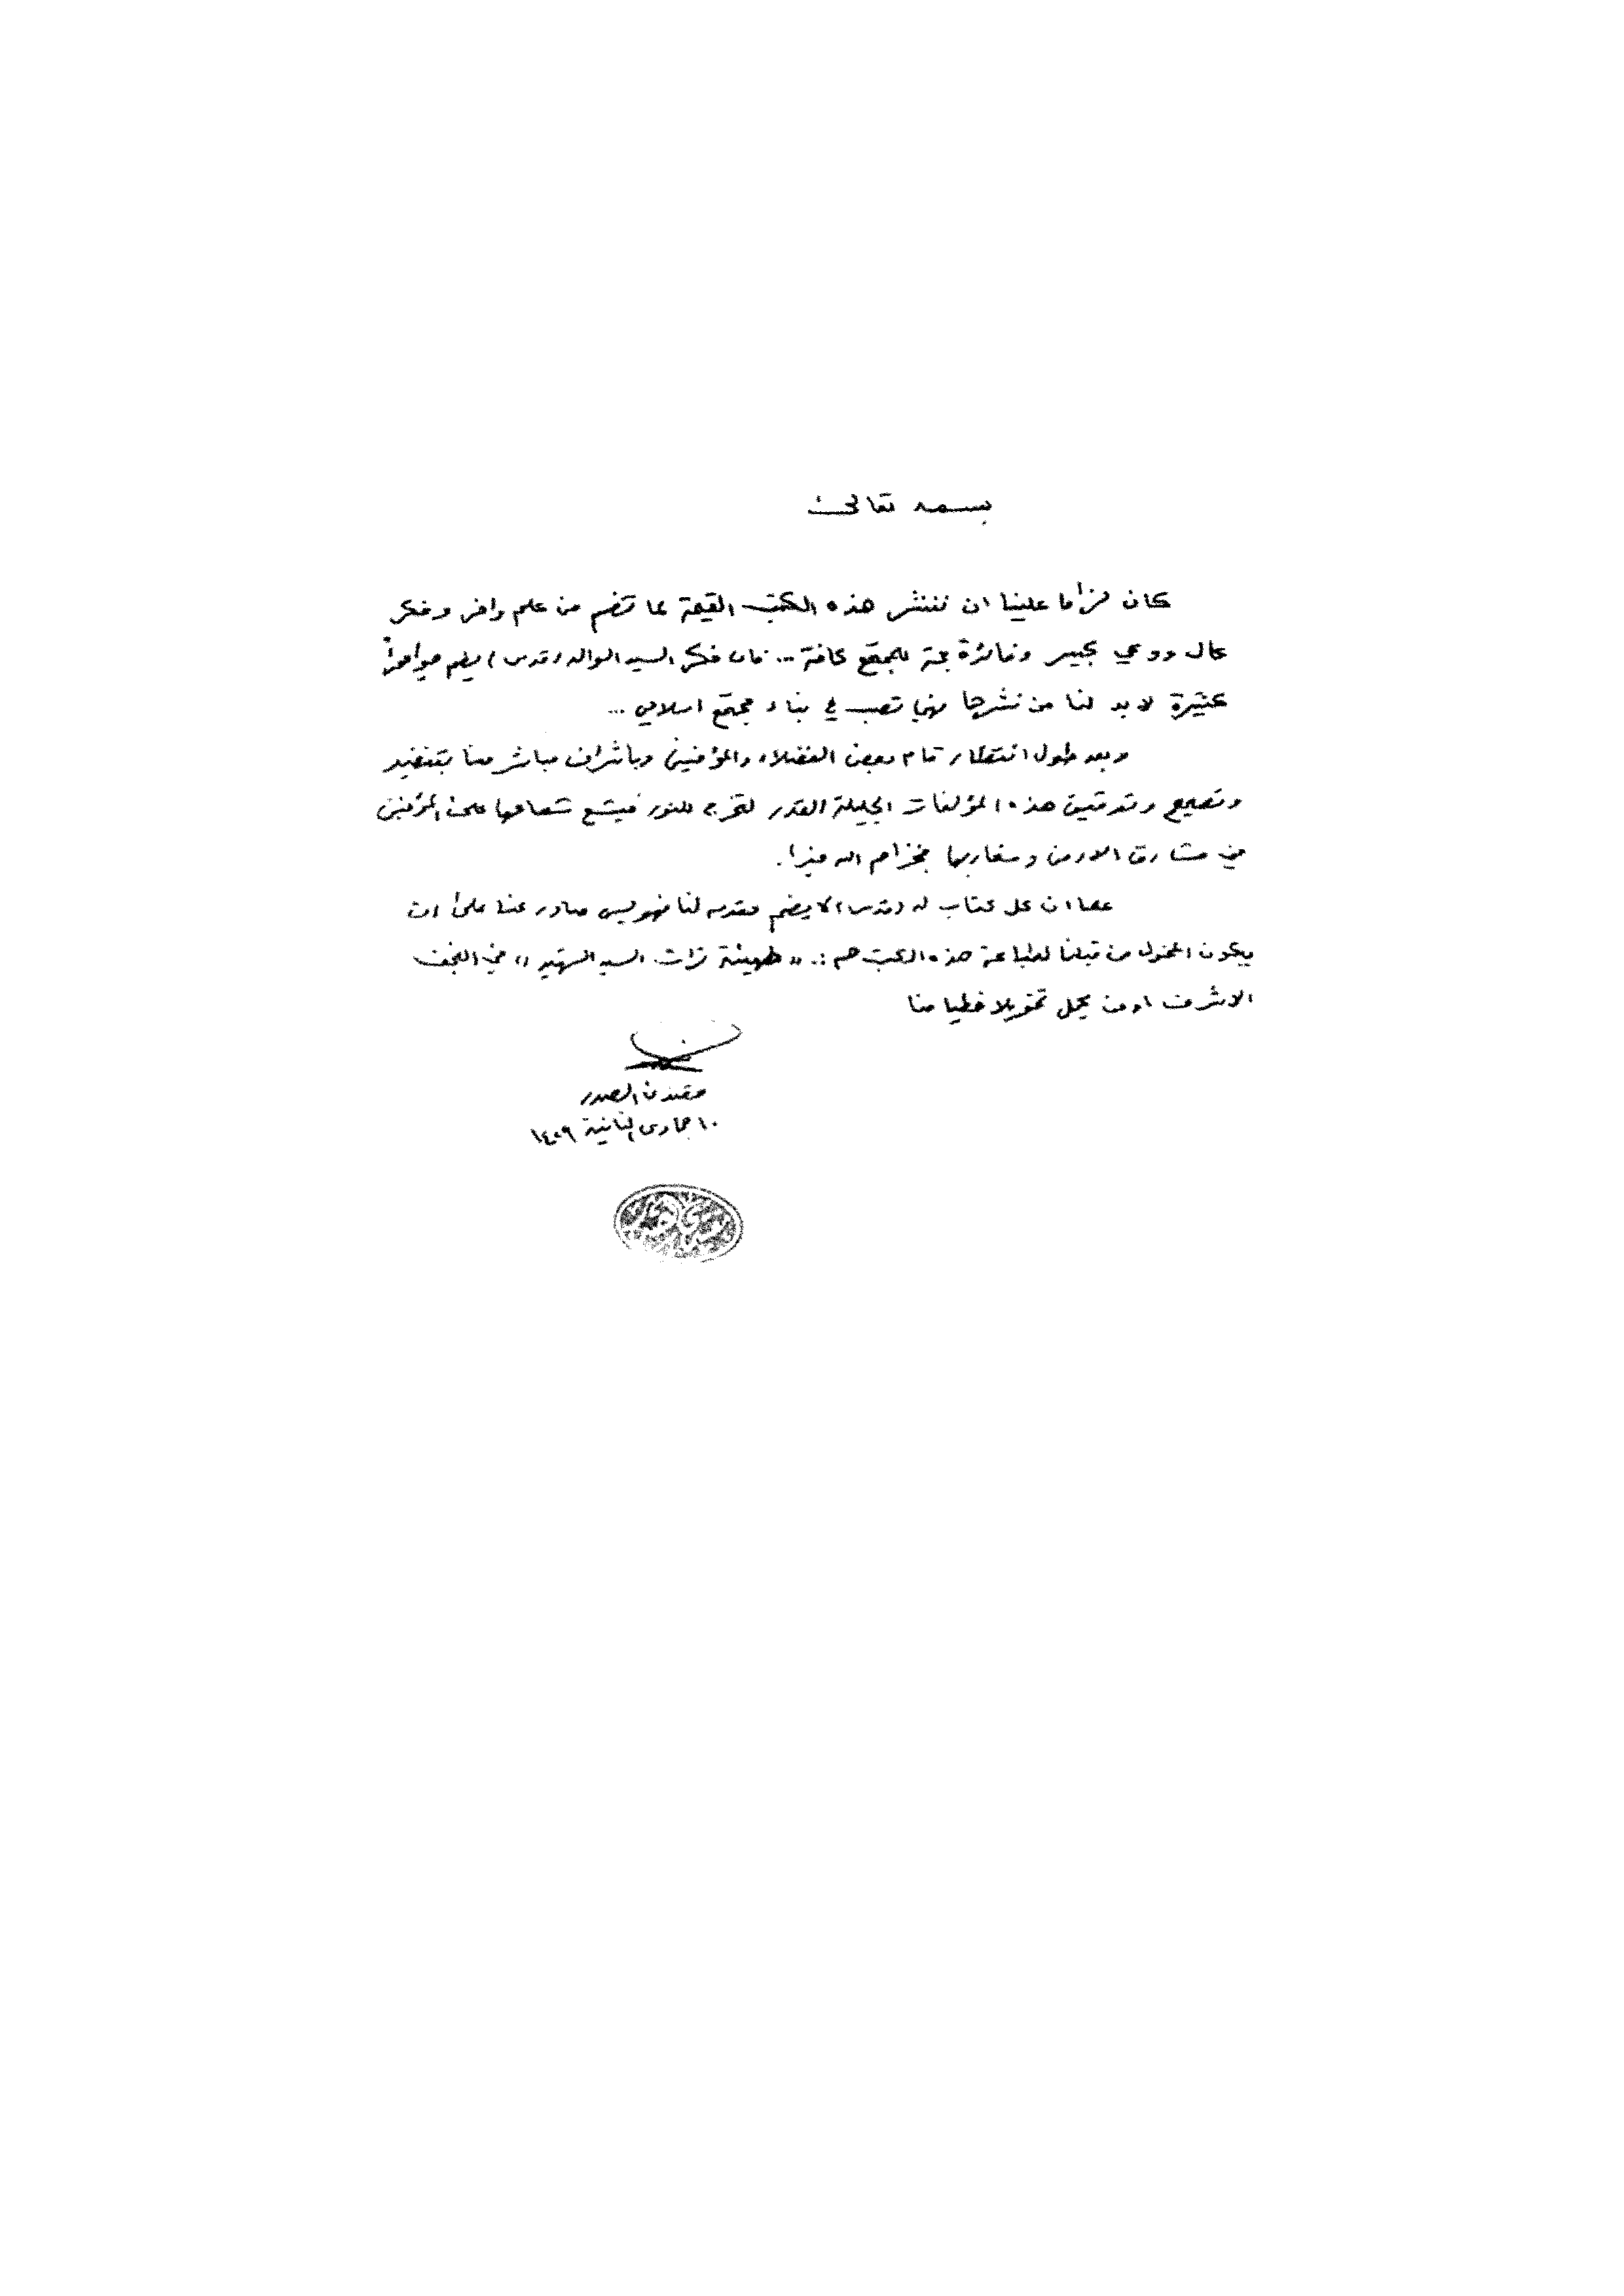 بسمه تعالى
كان لزاما علينا ان ننشر هذه الكتب القيمة لما تضم من علم وافر وفكر
عال ووعي كبير وفائدة جمة للمجتمع كافة ... فان فكر السيد الوالد (قدس) يضم
كثيرة لابد لنا من نشرها فهي تصب في بناء مجتمع اسلامي ...
وبعد طول انتظار قام بعض الفضلاء والمؤمنين وباشراف مباشر منا بتنضيد
وتصحيح وتدقيق هذه المؤلفات الجليلة القدر لتخرج للنور فيشع شعاعها على المؤمنين
في مشارق الارض ومغاربها فجزاهم الله خيرا.
علما ان كل كتاب له (قدس) لا يضم مقدمه لنا فهو ليس صادر عنا على ان
يكون المخول من قبلنا لطباعة هذه الكتب هم :. « هيئة تراث السيد الشهيد » في النجف
الاشرف او من يحمل تخويلا خطيا منا
مقتدى الصدر
١٠ جمادى الثانية ١٤٢٩